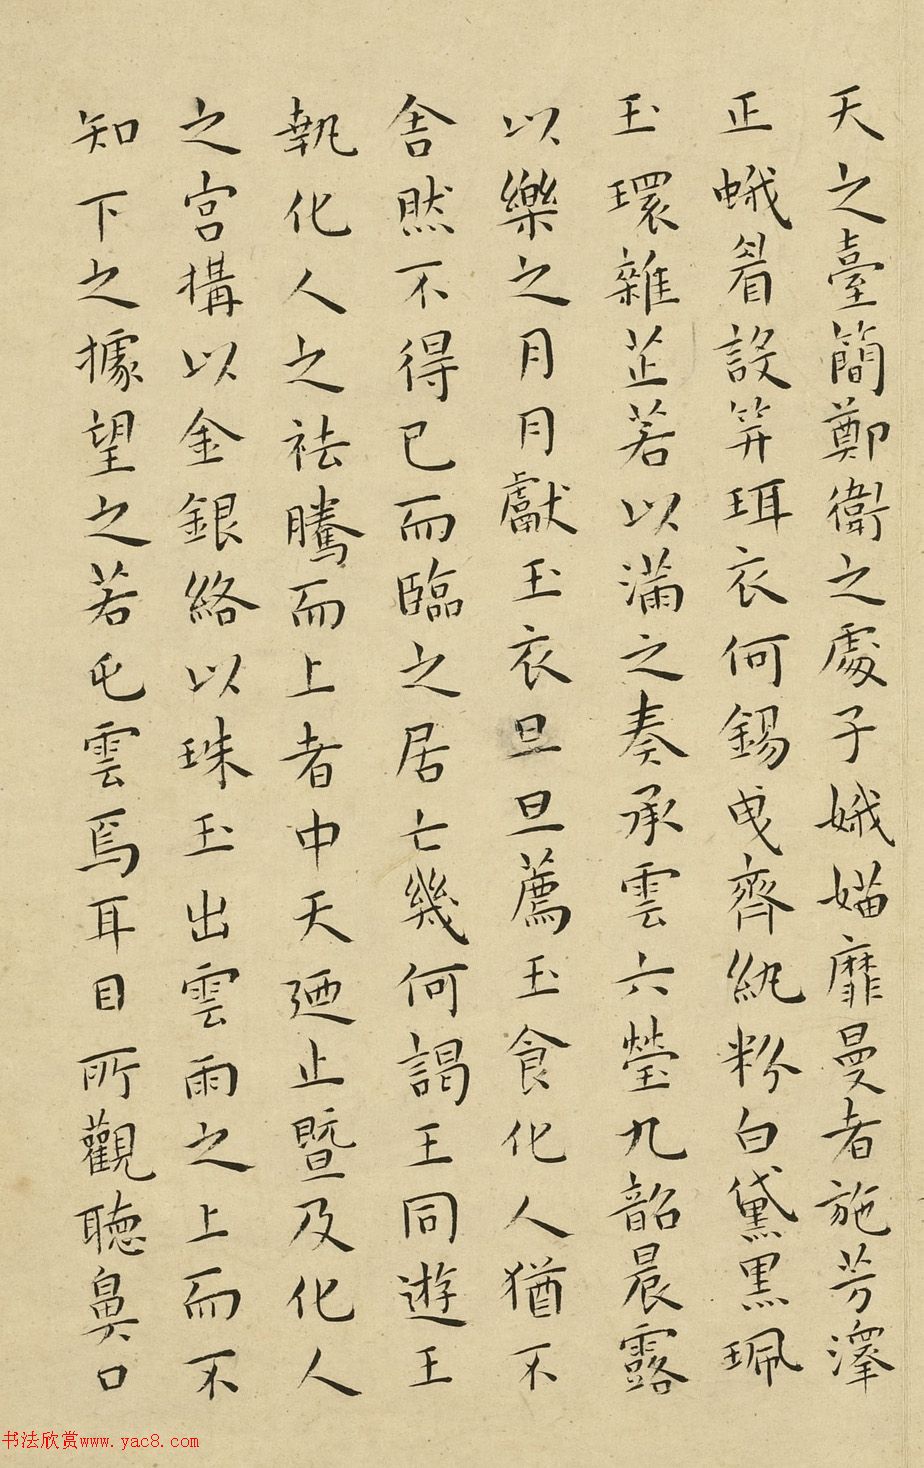 天之臺簡鄭衛之處子娥媌靡曼者施芳澤
正蛾眉設笄珥衣何錫曳齊紈粉白黛黑珮
玉環雜芷若以滿之奏承雲六瑩九韶晨露
以樂之月月獻玉衣旦旦薦玉食化人猶不
舍然不得已而臨之居亡幾何謁王同遊王
執化人之袪騰而上者中天迺止暨及化人
之宮構以金銀絡以珠玉出雲雨之上而不
知下之據望之若屯雲焉耳目所觀聽鼻口
书法欣赏www.yac8.com